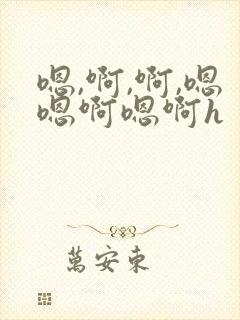 嗯,啊,啊,嗯
嗯啊嗯啊h
萬安東